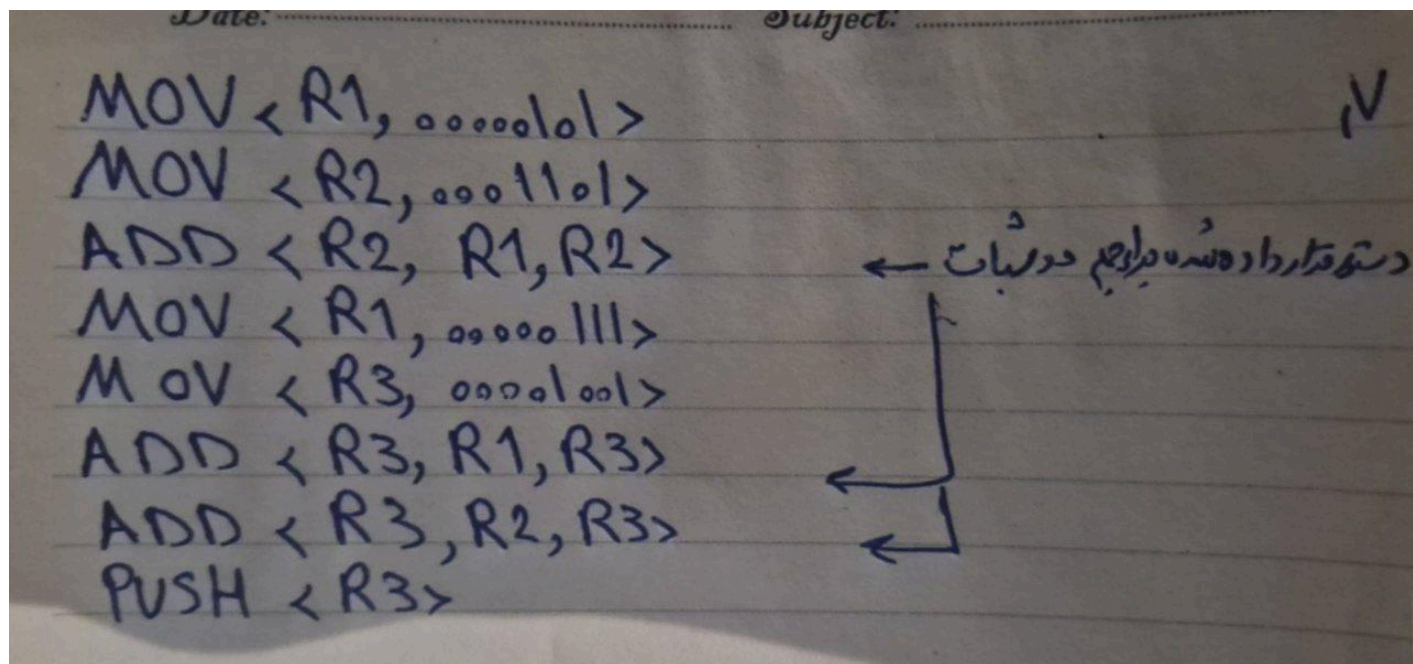 Date: Subject:
۷,
MOV < R1, 00000101 >
MOV < R2, 0001101>
ADD < R2, R1, R2>
دستور قرار داده شده برای جمع دو ثبات ←
MOV < R1, 00000111>
MOV < R3, 00001001>
ADD < R3, R1, R3>
ADD < R3, R2, R3>
PUSH < R3>